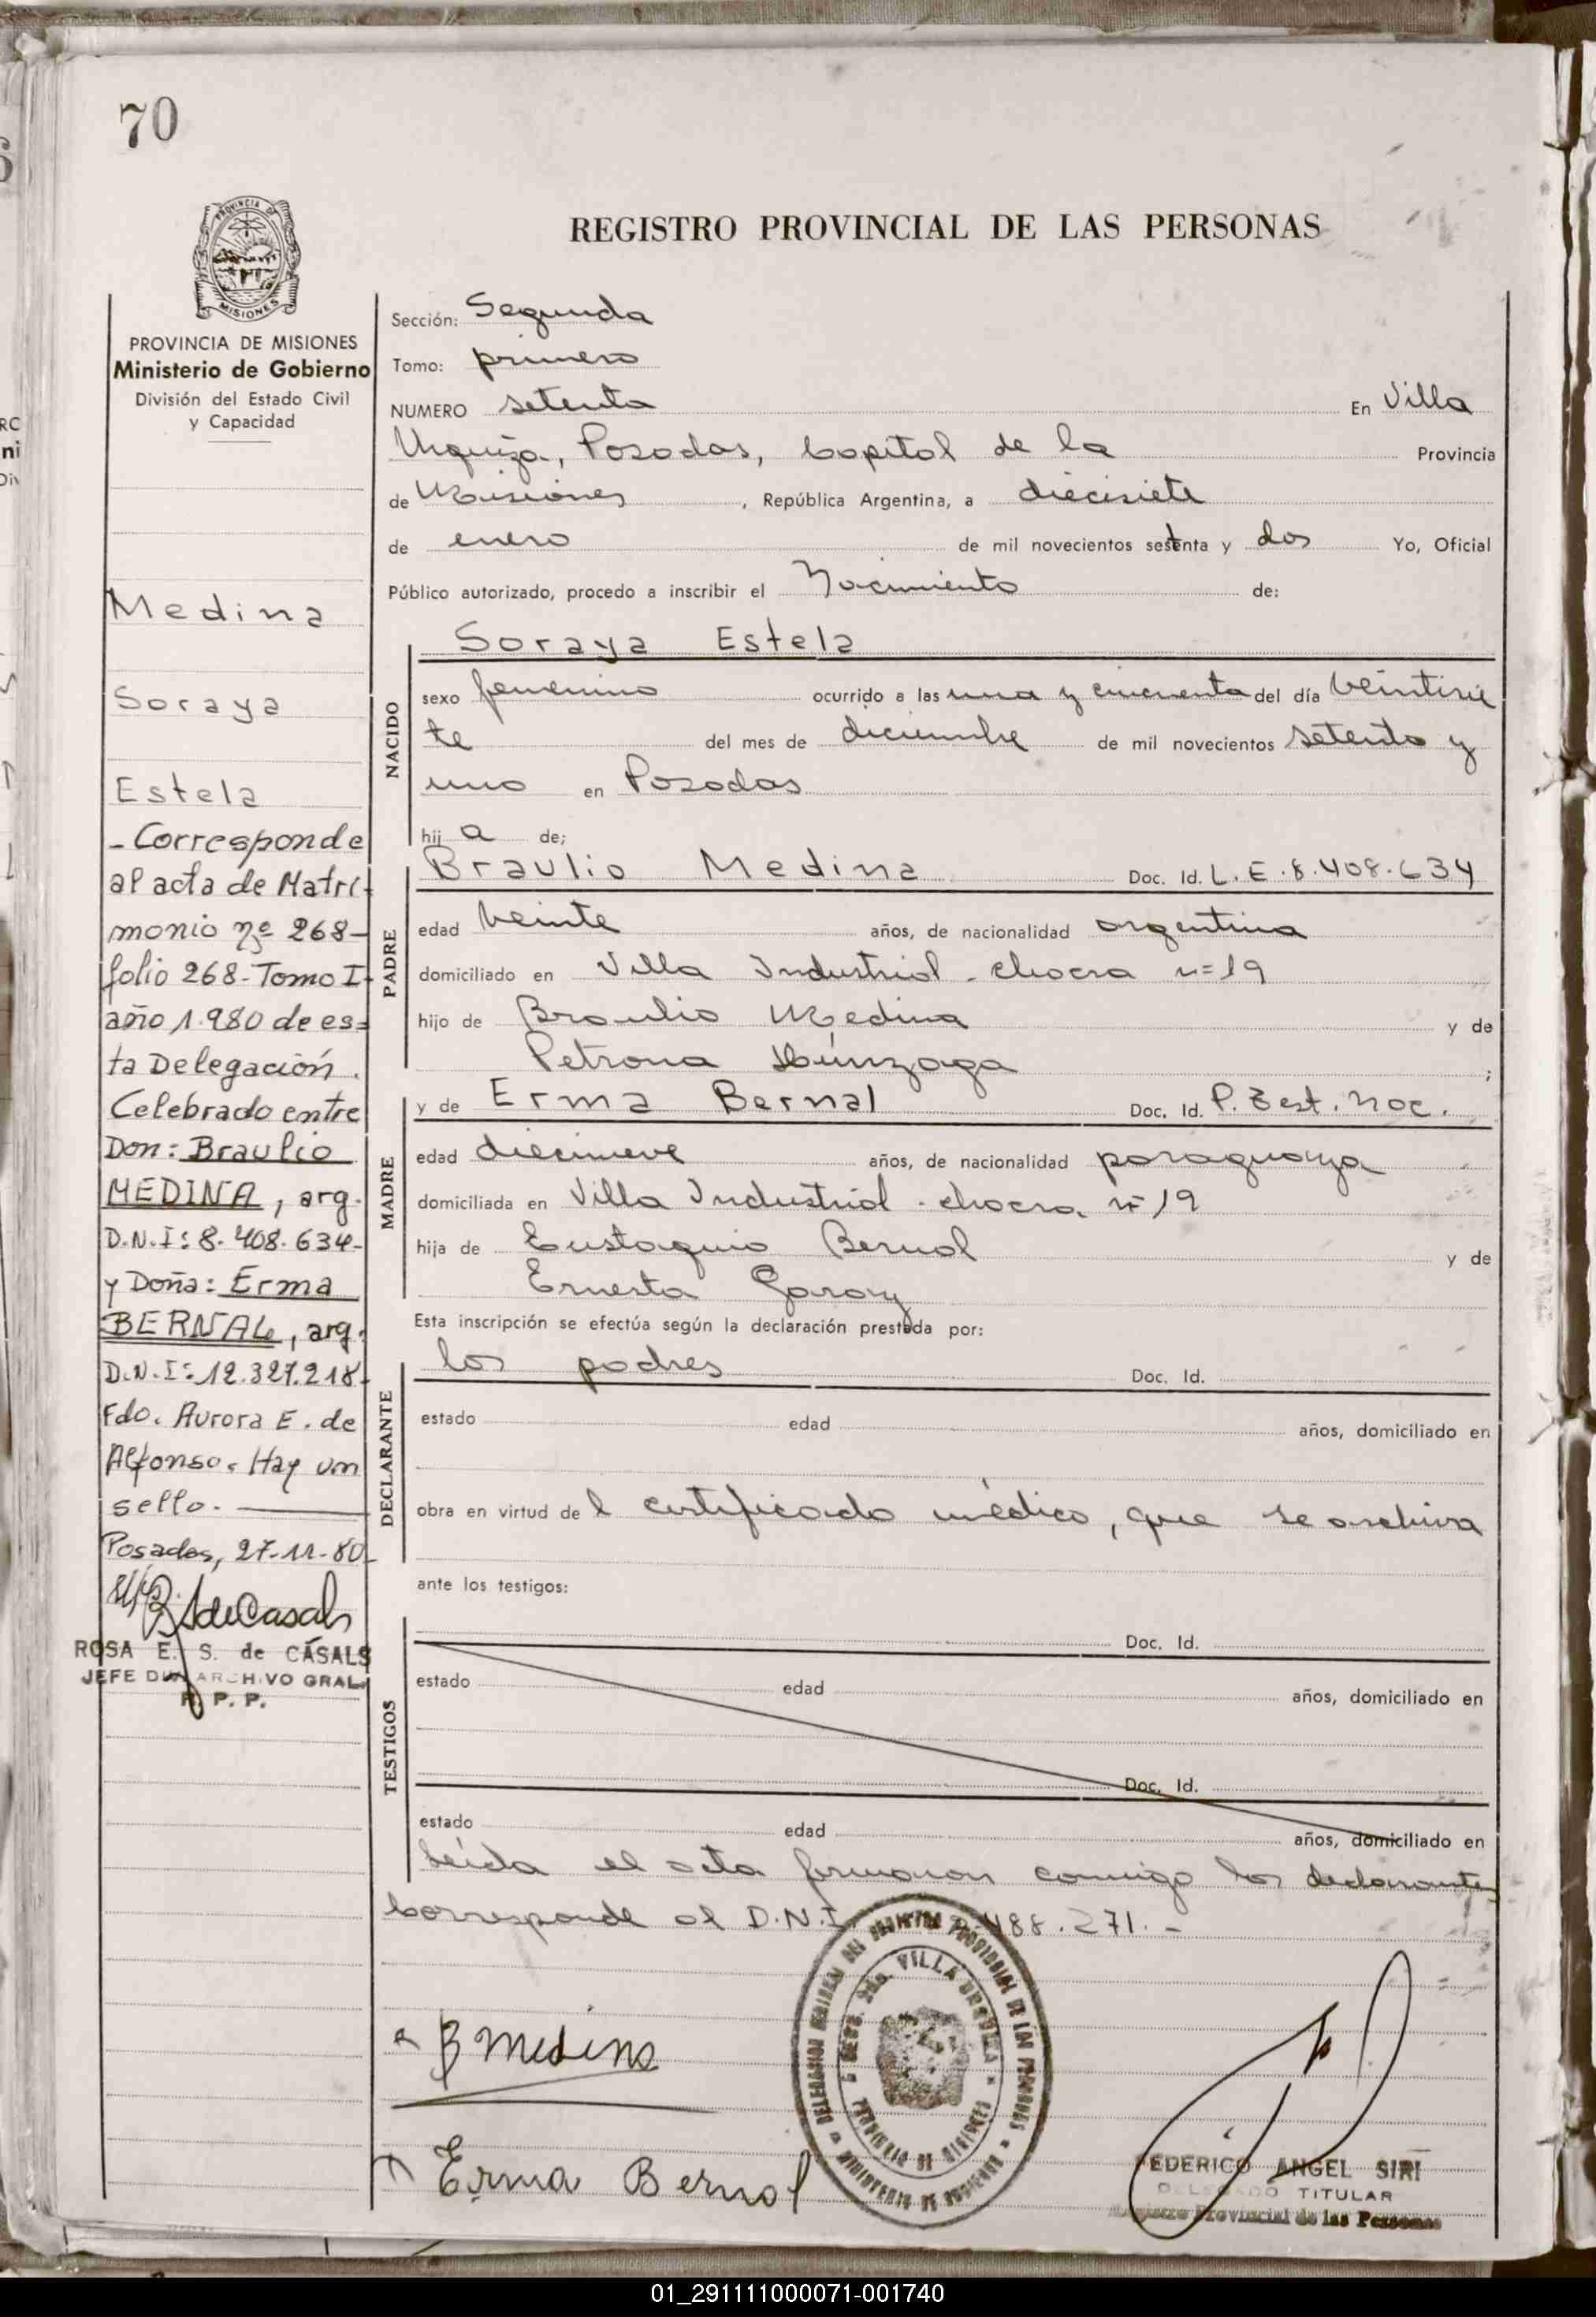 70
PROVINCIA DE
MISIONES
REGISTRO PROVINCIAL DE LAS PERSONAS
PROVINCIA DE MISIONES
Ministerio de Gobierno
División del Estado Civil
y Capacidad
Medina
Soraya
Estela
- Corresponde
al acta de Matri-
monio nº 268-
folio 268-Tomo I-
año 1.980 de es=
ta Delegación.
Celebrado entre
Don: Braulio
MEDINA, arg.
D.N.I: 8.408.634-
y Doña: Erma
BERNAL, arg.
D.N.I: 12.327.218-
Fdo. Aurora E. de
Alfonso. Hay un
sello.-
Posadas, 27-11-80-
ROSA E. S. de CASALS
JEFE DIV ARCHIVO GRAL.
R. P. P.
Sección: Segunda
Tomo: primero
NUMERO setenta En Villa
Urquiza, Posadas, Capital de la Provincia
de Misiones, República Argentina, a diecisiete
de enero de mil novecientos setenta y dos Yo, Oficial
Público autorizado, procedo a inscribir el Nacimiento de:
Soraya Estela
NACIDO
sexo femenino ocurrido a las una y cincuenta del día veintisie
te del mes de diciembre de mil novecientos setenta y
uno en Posadas
hij a de;
PADRE
Braulio Medina Doc. Id. L.E.8.408.634
edad veinte años, de nacionalidad argentina
domiciliado en Villa Industrial - chacra n=19
hijo de Braulio Medina y de
Petrona ;
MADRE
y de Erma Bernal Doc. Id. P. Test. Nac.
edad diecinueve años, de nacionalidad paraguaya
domiciliada en Villa Industrial - chacra nº 19
hija de Eustaquio Bernal y de
Ernesta Garay
Esta inscripción se efectúa según la declaración prestada por:
DECLARANTE
los padres Doc. Id.
estado edad años, domiciliado en
obra en virtud de l certificado médico, que se archiva
ante los testigos:
TESTIGOS
Doc. Id.
estado edad años, domiciliado en
Doc. Id.
estado edad años, domiciliado en
Leída el acta firmaron conmigo los declarantes
Corresponde al D.N.I. 488.271.-
DELEGACION DEL REGISTRO PROVINCIAL DE LAS PERSONAS
VILLA URQUIZA
PROVINCIA DE MISIONES
MINISTERIO DE GOBIERNO
B Medina
Erma Bernal
FEDERICO ANGEL SIRI
DELEGADO TITULAR
Registro Provincial de las Personas
01_291111000071-001740